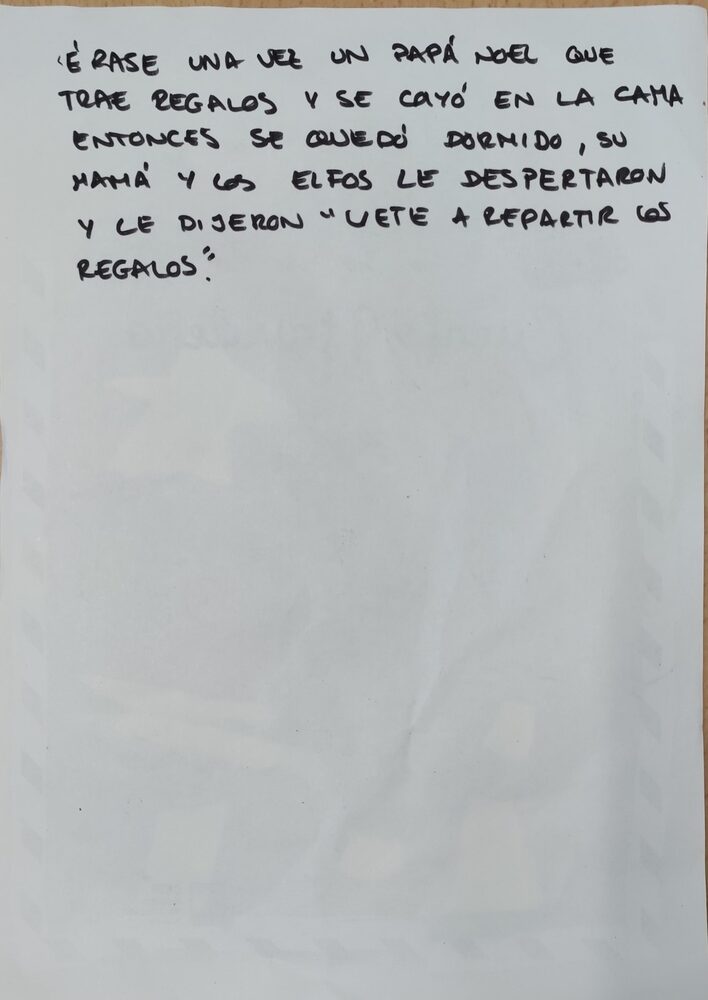 ÉRASE UNA VEZ UN PAPÁ NOEL QUE
TRAE REGALOS Y SE CAYÓ EN LA CAMA.
ENTONCES SE QUEDÓ DORMIDO, SU
MAMÁ Y LOS ELFOS LE DESPERTARON
Y LE DIJERON "VETE A REPARTIR LOS
REGALOS".